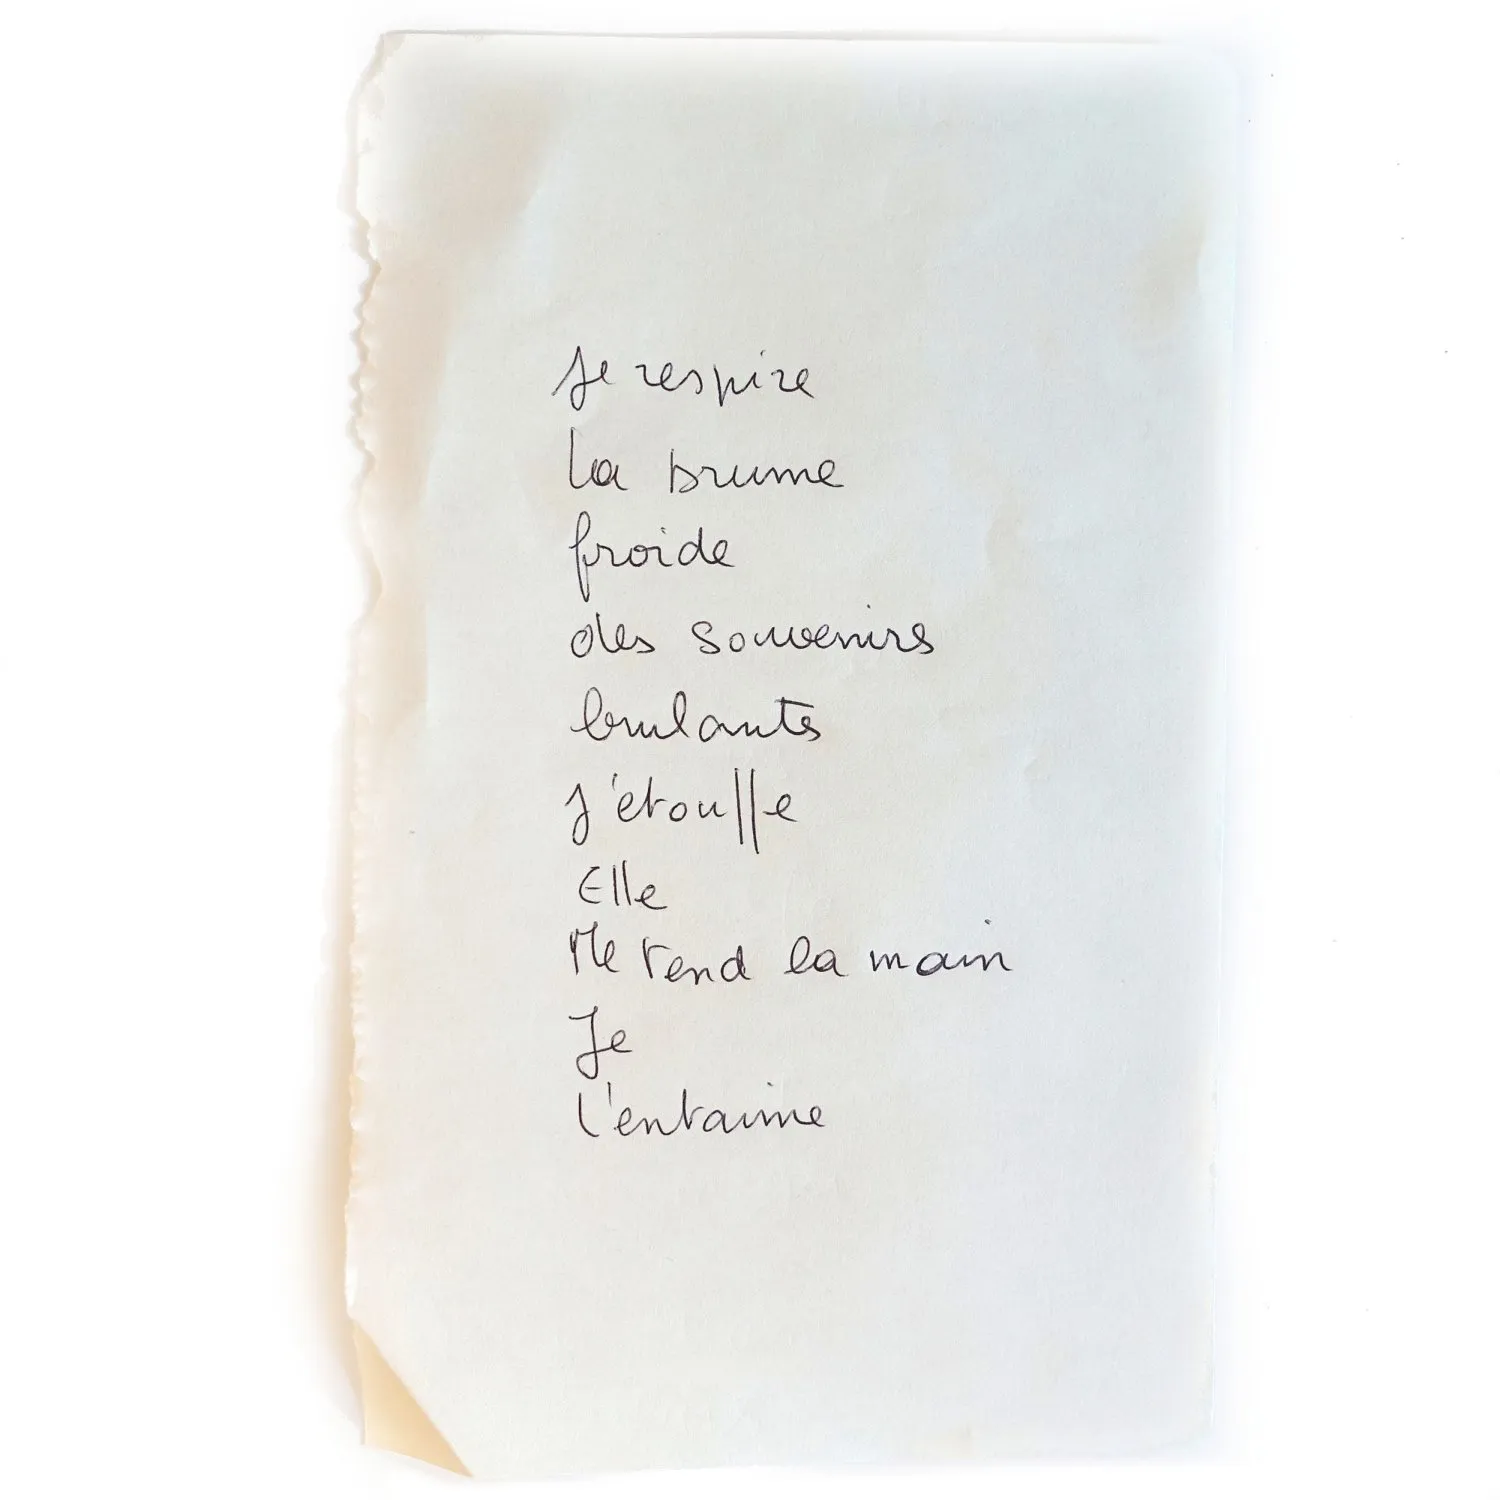 Je respire
la brume
froide
des souvenirs
brulants
J'étouffe
Elle
Me tend la main
Je
l'entraine